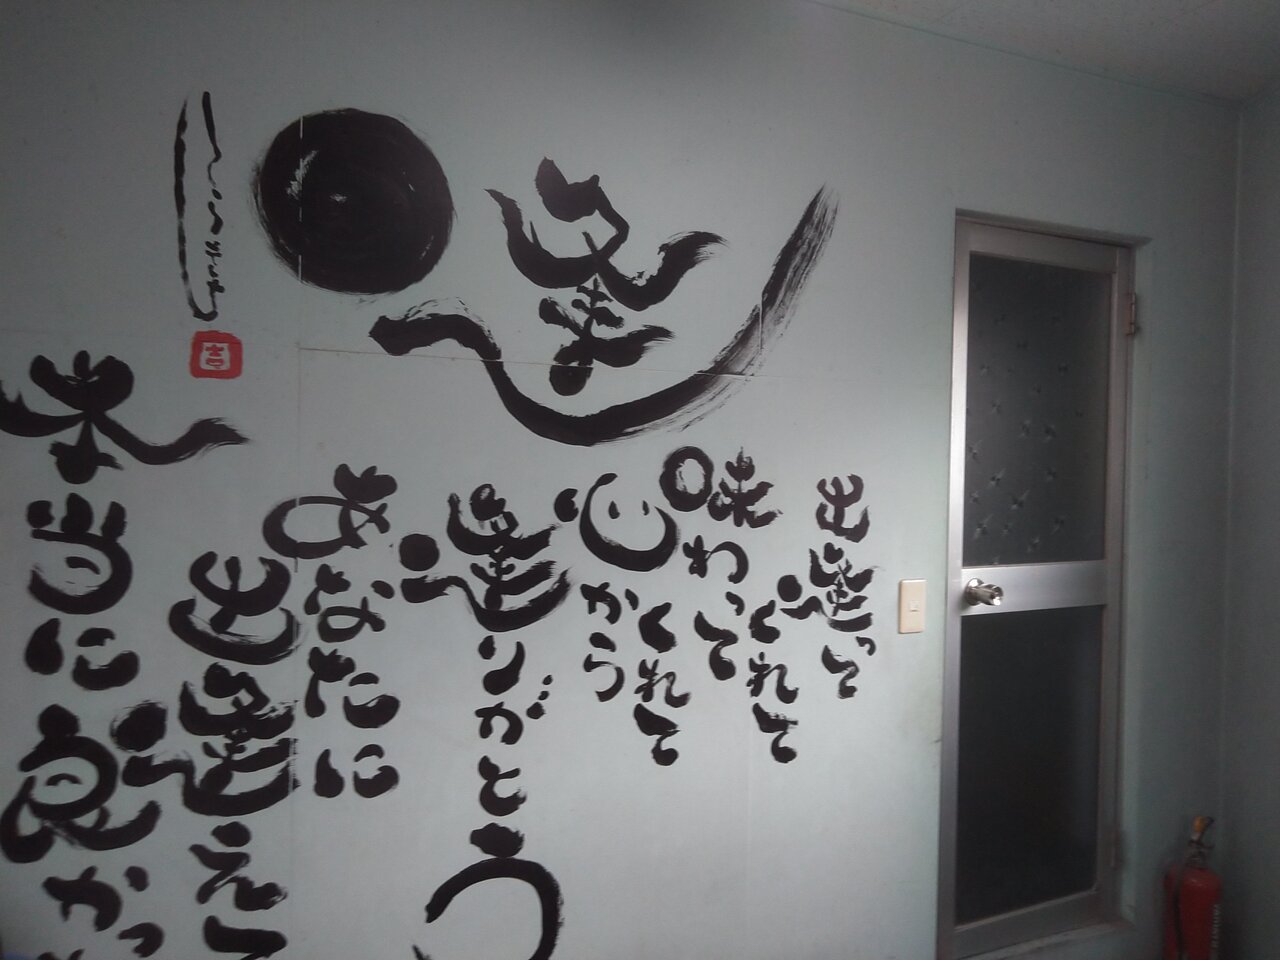 逢
出逢って
くれて
味わって
くれて
心から
逢りがとう
あなたに
出逢えて
本当に良かっ
吉